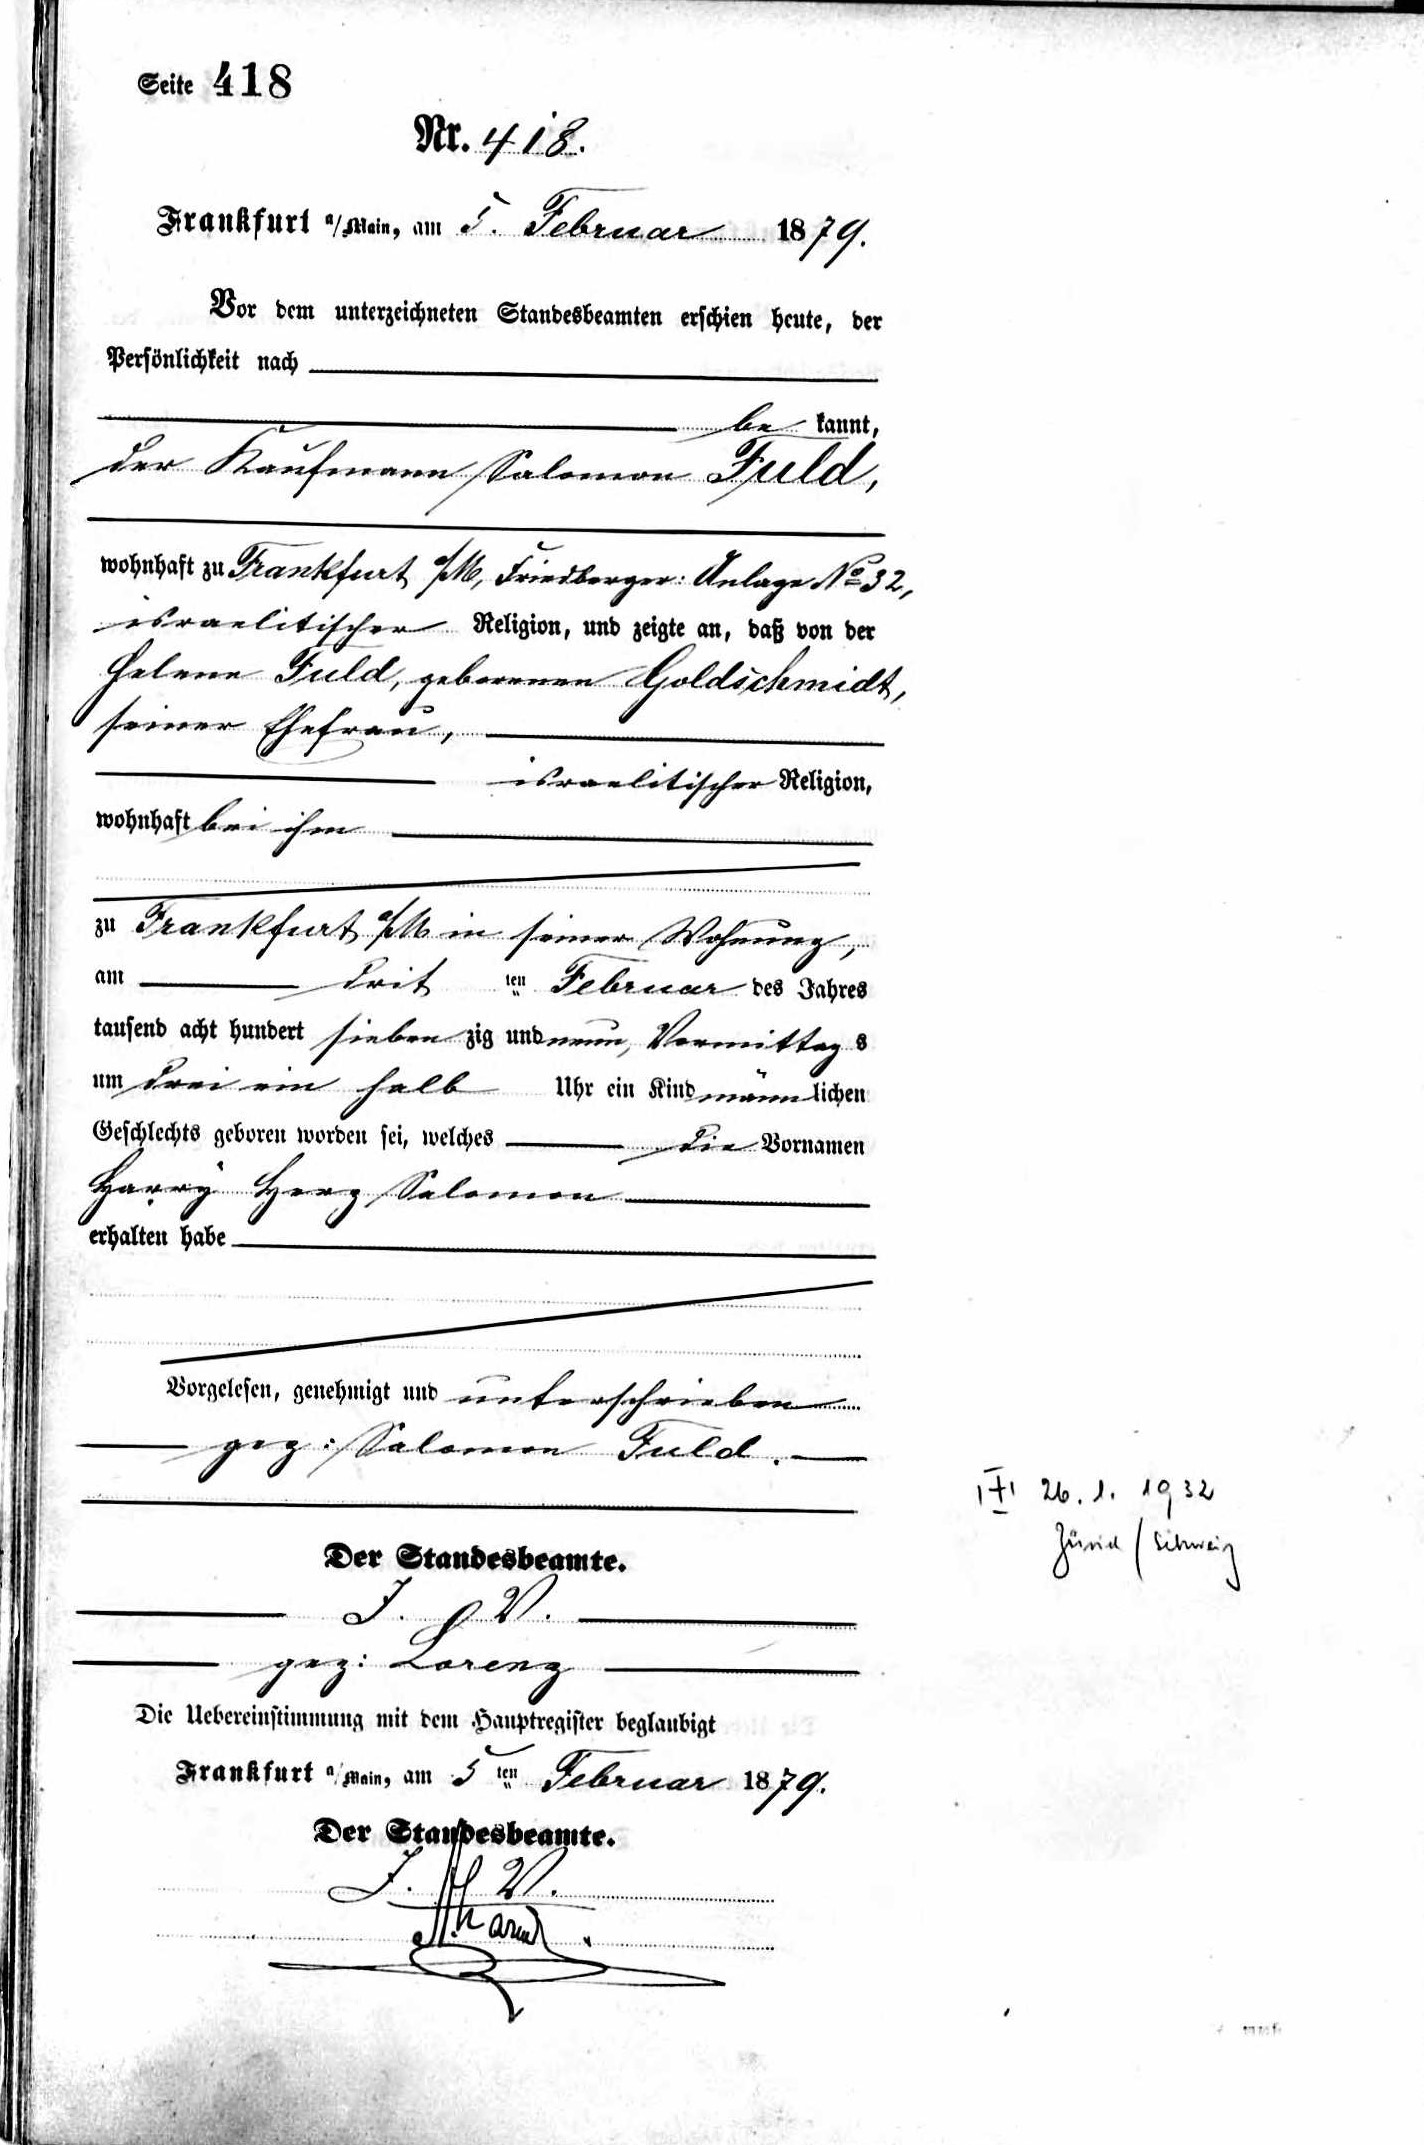 Seite 418
Nr. 418.
Frankfurt a/Main, am 5. Februar 1879.
Vor dem unterzeichneten Standesbeamten erschien heute, der
Persönlichkeit nach
be kannt,
der Kaufmann Salomon Fuld,
wohnhaft zu Frankfurt a/M, Friedberger: Anlage No 32,
israelitischer Religion, und zeigte an, daß von der
Helene Fuld, geborenen Goldschmidt,
seiner Ehefrau,
israelitischer Religion,
wohnhaft bei ihm
zu Frankfurt a/M in seiner Wohnung,
am drit ten Februar des Jahres
tausend acht hundert sieben zig und neun, Vormittag s
um drei ein halb Uhr ein Kind männ lichen
Geschlechts geboren worden sei, welches die Vornamen
Harry Herz Salomon
erhalten habe
Vorgelesen, genehmigt und unterschrieben
gez: Salomon Fuld.
Der Standesbeamte.
J. V.
gez: Lorenz
Die Uebereinstimmung mit dem Hauptregister beglaubigt
Frankfurt a/Main, am 5 ten Februar 1879.
Der Standesbeamte.
J. V.
26. 1. 1932
Zürich / Schweiz